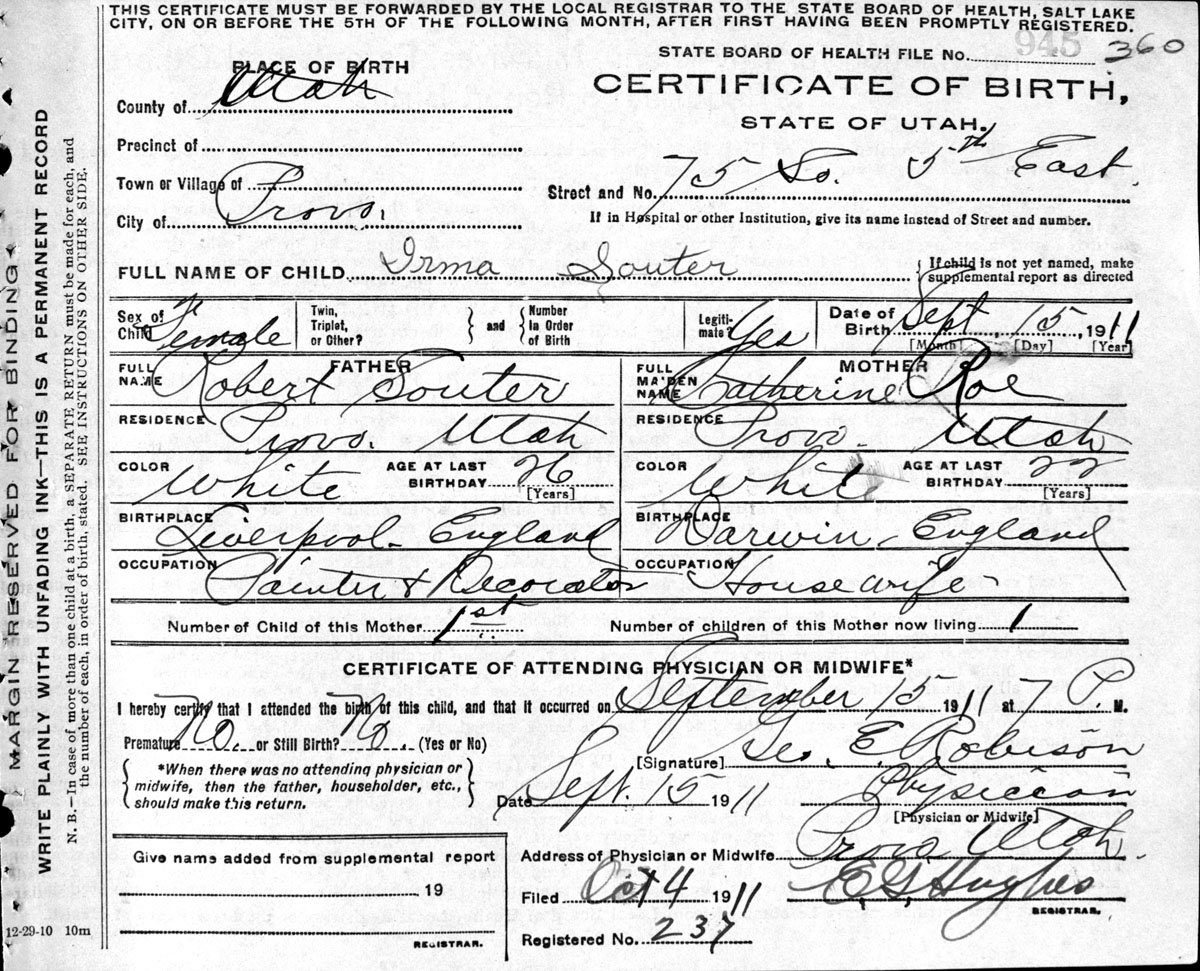 THIS CERTIFICATE MUST BE FORWARDED BY THE LOCAL REGISTRAR TO THE STATE BOARD OF HEALTH, SALT LAKE
CITY, ON OR BEFORE THE 5TH OF THE FOLLOWING MONTH, AFTER FIRST HAVING BEEN PROMPTLY REGISTERED.
STATE BOARD OF HEALTH FILE No. 945 360
PLACE OF BIRTH
CERTIFICATE OF BIRTH,
County of Utah
STATE OF UTAH.
Precinct of
Town or Village of
Street and No. 75 So. 5th East.
City of Provo.
If in Hospital or other Institution, give its name instead of Street and number.
FULL NAME OF CHILD Irma Souter { If child is not yet named, make
supplemental report as directed
Sex of Child Female Twin, Triplet, or Other? } and { Number in Order of Birth Legiti-mate? Yes Date of Birth Sept 15, 1911
[Month] [Day] [Year]
FATHER MOTHER
FULL NAME Robert Souter FULL MAIDEN NAME Catherine Roe
RESIDENCE Provo. Utah RESIDENCE Provo. Utah
COLOR White AGE AT LAST BIRTHDAY 26 [Years] COLOR White AGE AT LAST BIRTHDAY 22 [Years]
BIRTHPLACE Liverpool - England BIRTHPLACE Darwin - England
OCCUPATION Painter & Decorator OCCUPATION Housewife -
Number of Child of this Mother 1st Number of children of this Mother now living 1
CERTIFICATE OF ATTENDING PHYSICIAN OR MIDWIFE*
I hereby certify that I attended the birth of this child, and that it occurred on September 15 1911 at 7 P. M.
Premature No. or Still Birth? No. (Yes or No)
[Signature] Geo. E. Robison
{ *When there was no attending physician or
midwife, then the father, householder, etc.,
should make this return. }
Date Sept. 15 1911 Physician
[Physician or Midwife]
Address of Physician or Midwife Provo Utah.
Give name added from supplemental report
19
REGISTRAR.
Filed Oct 4 1911 E. G. Hughes
REGISTRAR.
Registered No. 237
12-29-10 10m
MARGIN RESERVED FOR BINDING
WRITE PLAINLY WITH UNFADING INK—THIS IS A PERMANENT RECORD
N. B.—In case of more than one child at a birth, a SEPARATE RETURN must be made for each, and
the number of each, in order of birth, stated. SEE INSTRUCTIONS ON OTHER SIDE.